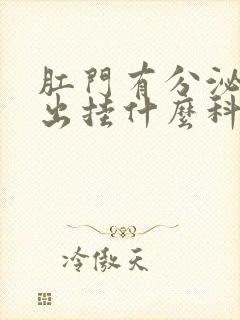 肛門有分泌
出挂什麼科
冷傲天